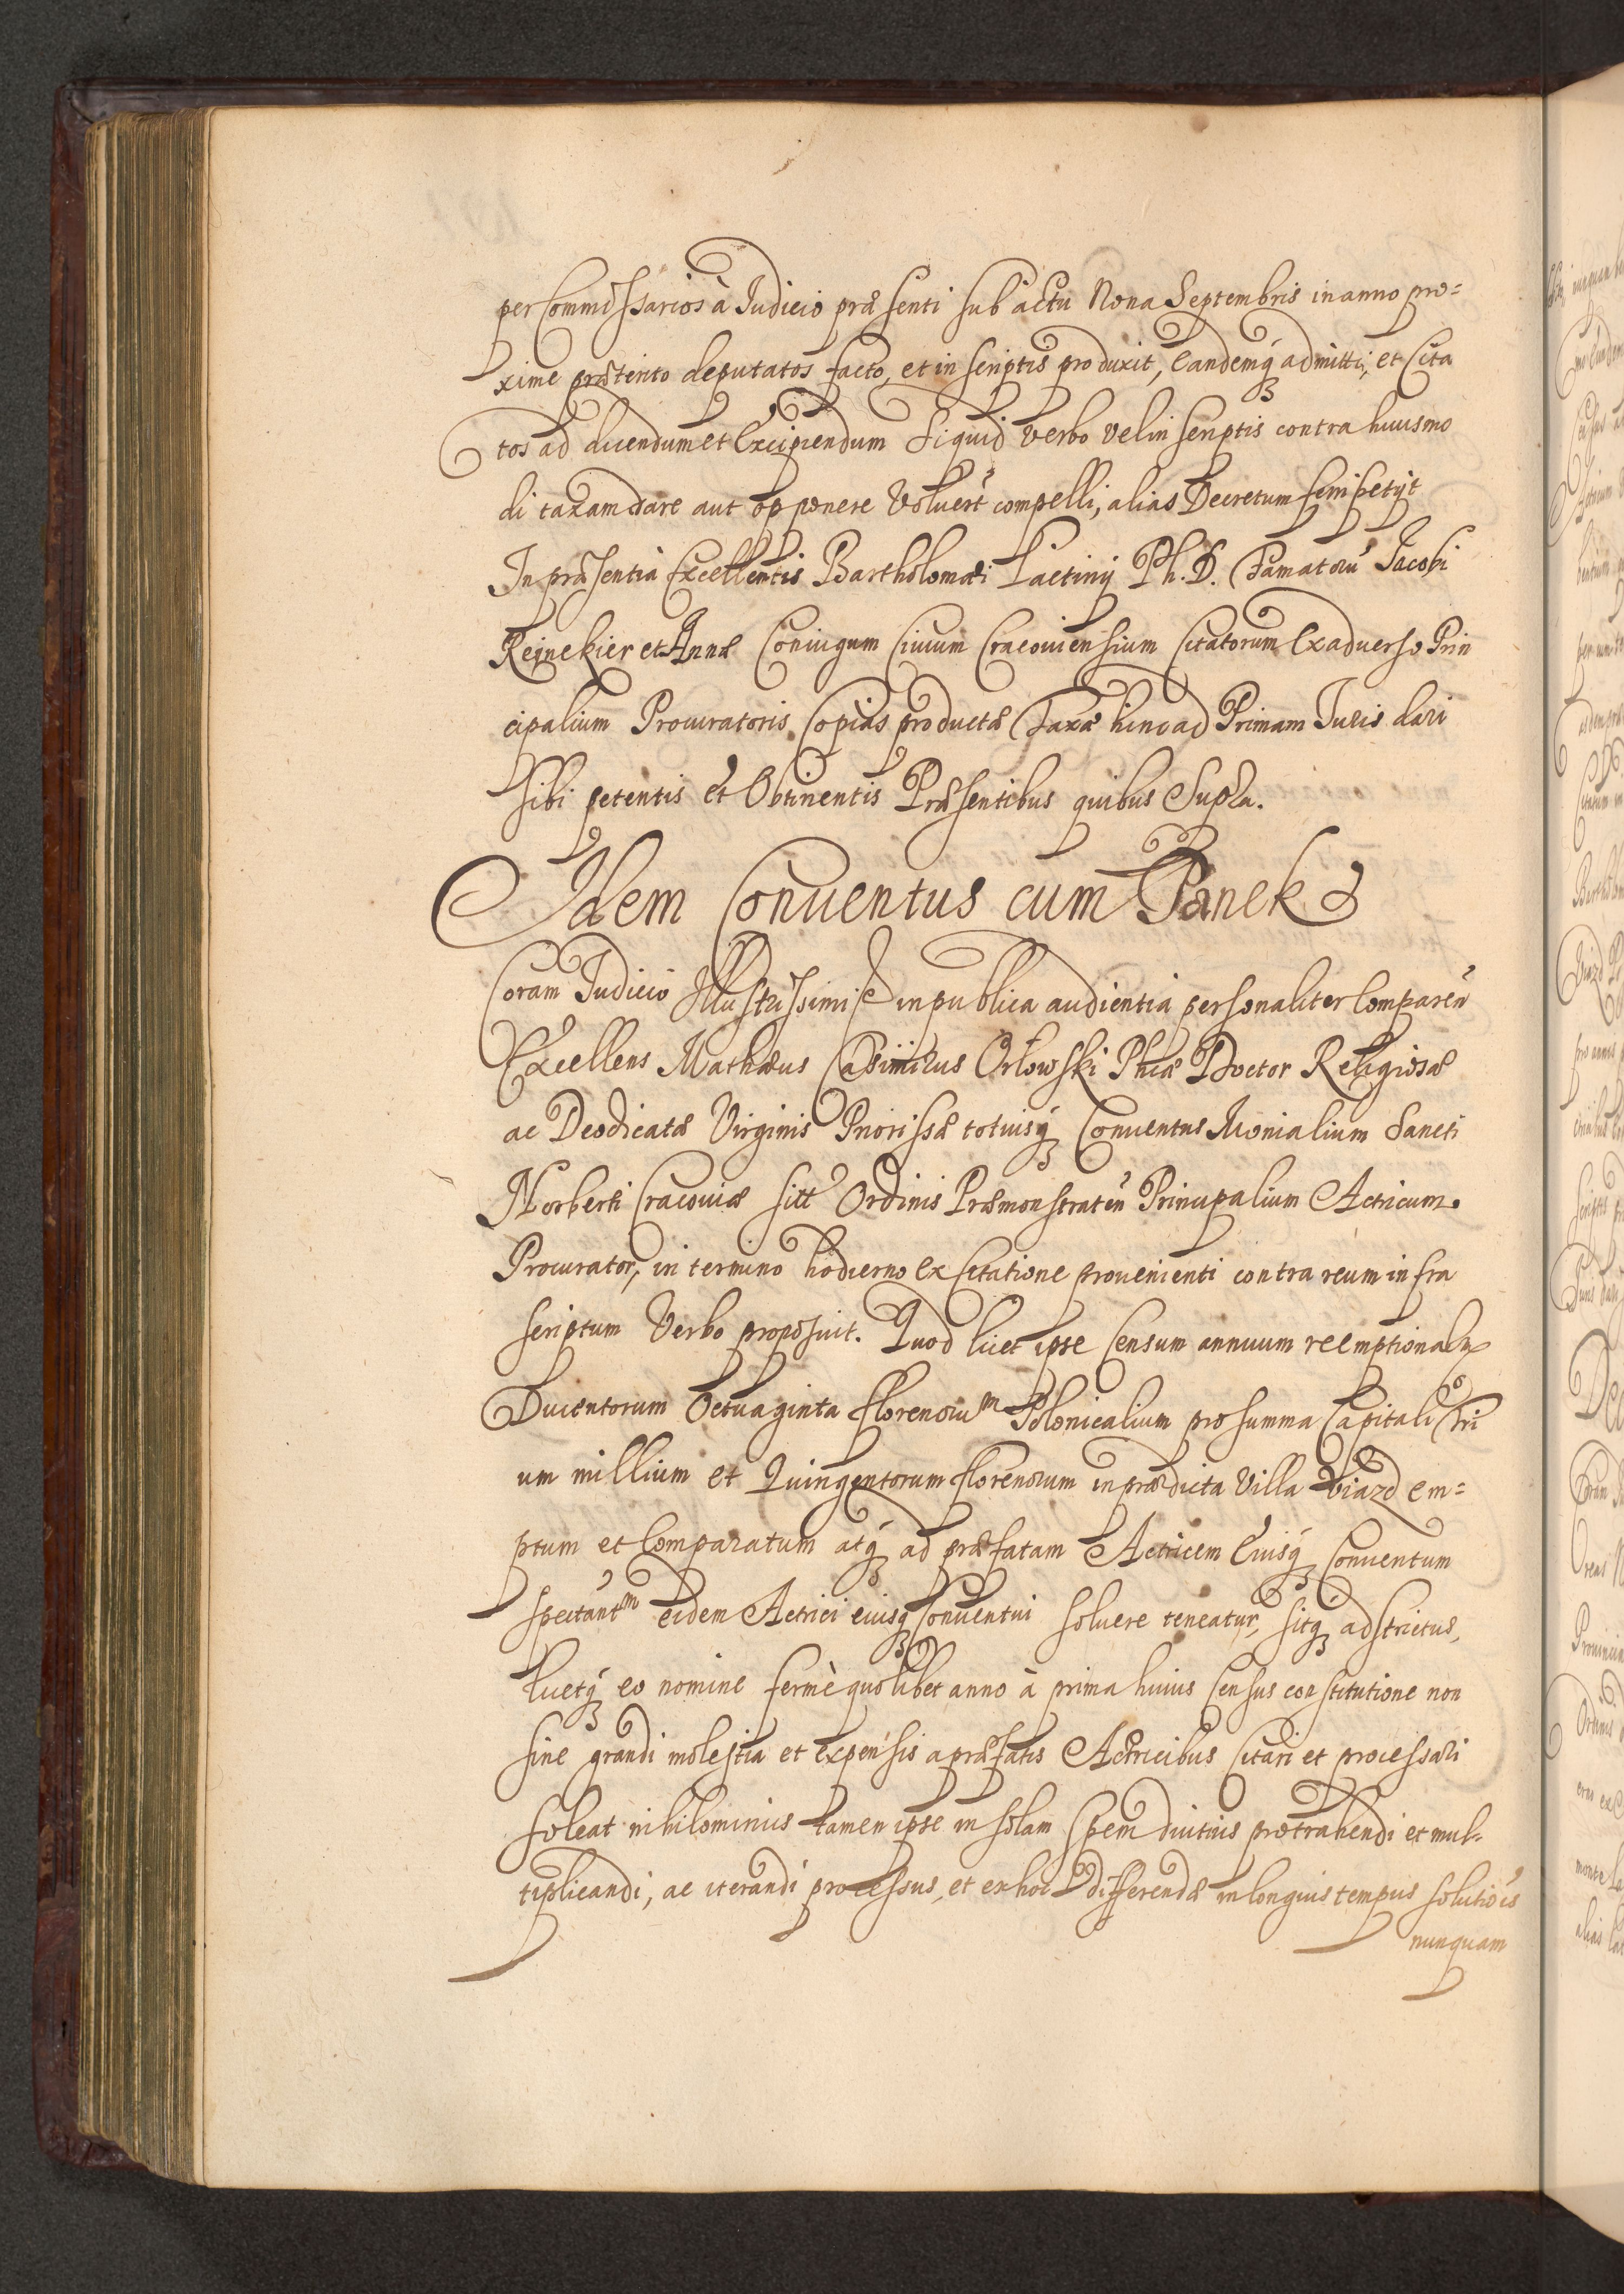 per Commissarios à Judicio præsenti sub actu Nona Septembris in anno pro=
xime præterito deputatos facto, et in scriptis produxit, Eandemq́ admitti, et Cita
tos ad dicendum et Excipiendum Siquid verbo vel in scriptis contra huiusmo
di taxam dare aut opponere Voluer̃t compelli, alias Decretum ferri petijt
In præsentia Excellentis Bartholomæi Lactinij Ph. D. Famatorũ Jacobi
Rejnekier et Annæ Coniugum Ciuium Cracouiensium Citatorum Ex aduerso Prin
cipalium Procuratoris Copias productæ Taxæ hinc ad Primam Juris dari
sibi petentis et Obtinentis Præsentibus quibus Supra.
Idem Conuentus cum Panek
Coram Judicio Illustrissimi in publica audientia personaliter Compareñ
Excellens Mathæus Casimirus Orłowski Phiæ Doctor Religiosæ
ac Deodicatæ Virginis Priorissæ totiusq́ Conuentus Monialium Sancti
Norberti Cracouiæ sitt Ordinis Præmonstrateñ Principalium Actricum
Procurator, in termino hodierno ex Citatione prouenienti contra reum infra
scriptum Verbo proposuit. Quod licet ipse Censum annuum reemptionalem
Ducentorum Octuaginta florenorum Polonicalium pro summa Capitali Tri
um millium et Quingentorum florenorum in prædicta Villa Wiazd em=
ptum et Comparatum atq́ ad præfatam Actricem Eiusq́ Conuentum
spectantem eidem Actrici eiusq́ Conuentui soluere teneatur, sitq́ adstrictus,
licetq́ eo nomine fermè quolibet anno à prima huius Census constitutione non
sine grandi molestia et expensis a præfatis Actricibus Citari et processari
soleat nihilominus tamen ipse in solam Spem diutius protrahendi et mul=
tiplicandi, ac iterandi processus, et ex hoc differendæ in longius tempus solutiois
nunquam